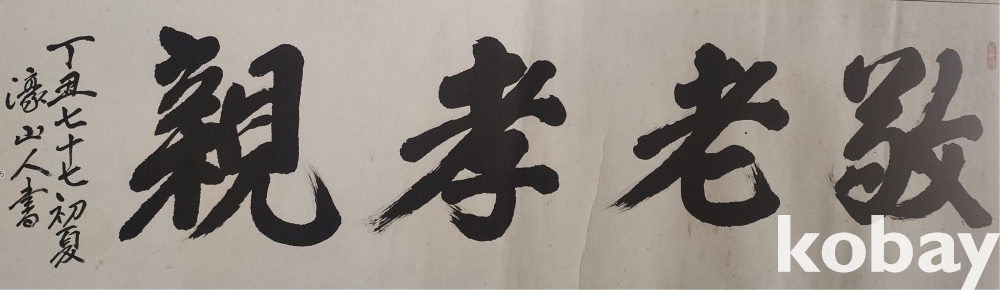 敬老孝親
丁丑七十七初夏
濠山人書
kobay